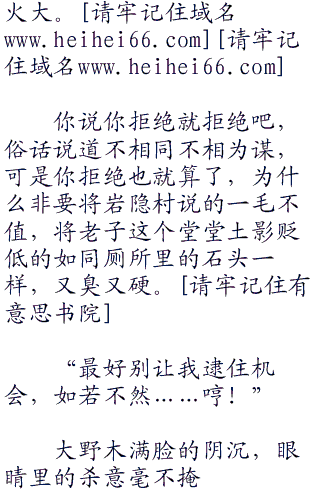 火大。[请牢记住域名
www.heihei66.com][请牢记
住域名www.heihei66.com]
你说你拒绝就拒绝吧，
俗话说道不相同不相为谋，
可是你拒绝也就算了，为什
么非要将岩隐村说的一毛不
值，将老子这个堂堂土影贬
低的如同厕所里的石头一
样，又臭又硬。[请牢记住有
意思书院]
“最好别让我逮住机
会，如若不然……哼！”
大野木满脸的阴沉，眼
睛里的杀意毫不掩